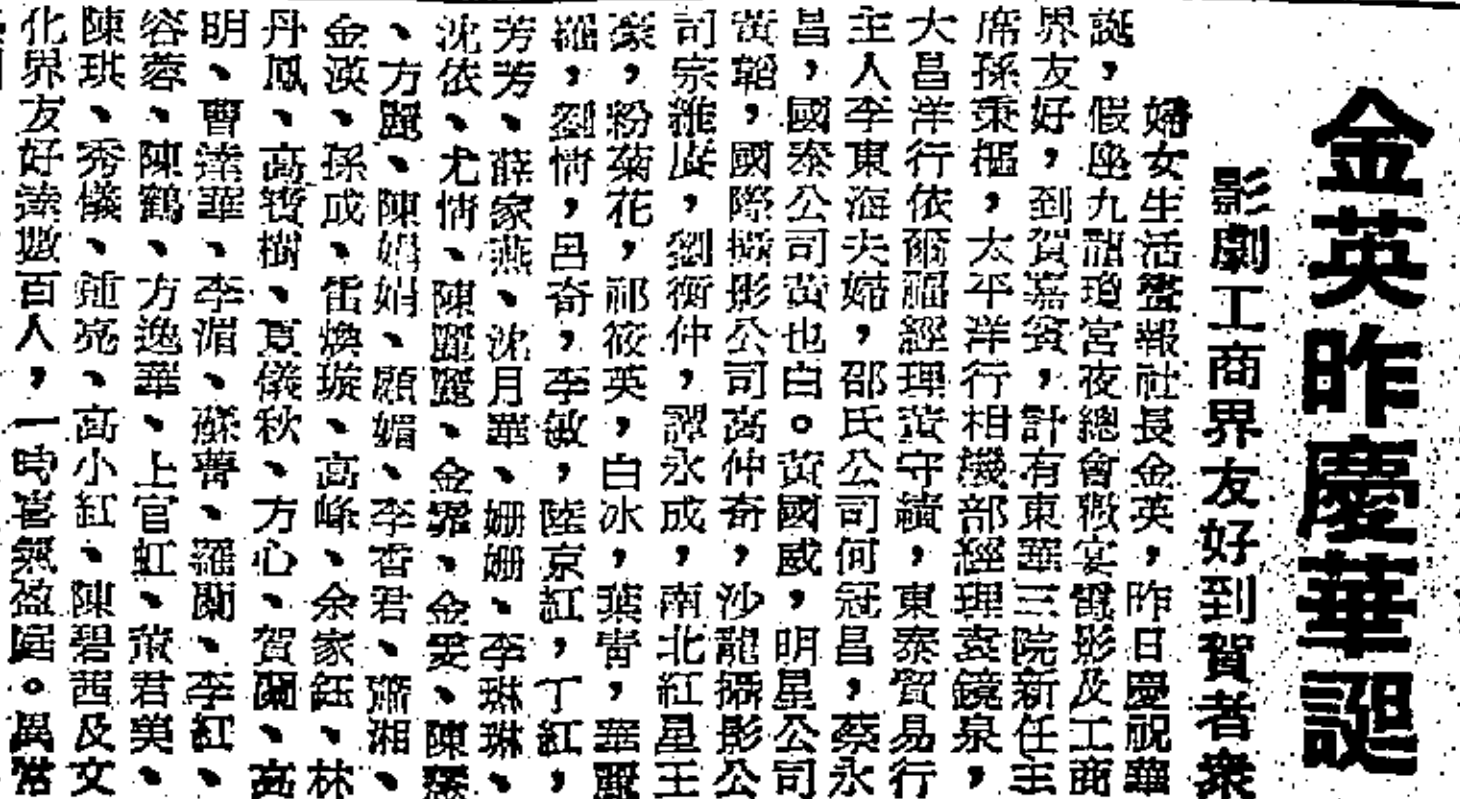 金英昨慶華誕
影劇工商界友好到賀者衆
婦女生活畫報社長金英，昨日慶祝華
誕，假座九龍瓊宮夜總會讌宴電影及工商
界友好，到賀嘉賓，計有東華三院新任主
席孫秉樞，太平洋行相機部經理袁鏡泉，
大昌洋行依爾福經理黃守續，東泰貿易行
主人李東海夫婦，邵氏公司何冠昌，蔡永
昌，國泰公司黃也白。黃國威，明星公司
黃韜，國際攝影公司高仲奇，沙龍攝影公
司宗維賡，劉衡仲，譚永成，南北紅星王
豪，粉菊花，祁筱英，白冰，葉青，華麗
羅，劉情，呂奇，李敏，陸京紅，丁紅，
芳芳、薛家燕、沈月華、姍姍、李琳琳、
沈依、尤情、陳麗麗、金霏、金雯、陳
、方麗、陳娟娟、顧媚、李香君、瀟湘、
金漢、孫成、雷煥璇、高峰、余家鈺、林
丹鳳、高寶樹、夏儀秋、方心、賀蘭、高
明、曹達華、李湄、蘇菁、羅蘭、李紅、
容蓉、陳鶴、方逸華、上官虹、董君美、
陳琪、秀儀、鍾亮、高小紅、陳碧茜及文
化界友好達數百人，一時喜氣盈庭。異常